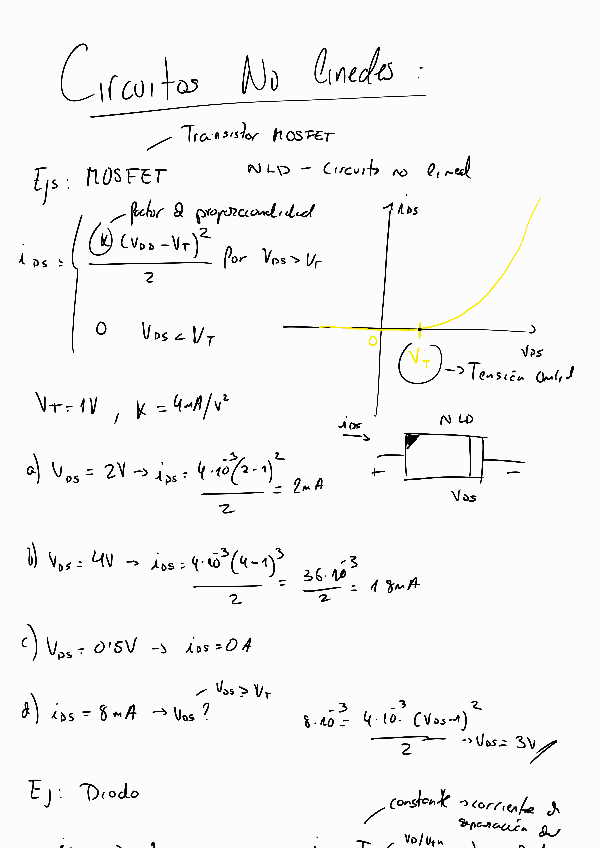 Circuitos No lineales :
Transistor MOSFET
Ejs: MOSFET NLD - Circuito no lineal
factor d proporcionalidad
iDS = { K (VDD - VT)^2 / 2 por VDS > VT
0 VDS < VT
iDS
0 VT VDS
-> Tensión
VT = 1V , K = 4mA/V^2
iDS -> NLD
+ -
VDS
a) VDS = 2V -> iDS = 4·10^-3 (2-1)^2 / 2 = 2mA
b) VDS = 4V -> iDS = 4·10^-3 (4-1)^3 / 2 = 36·10^-3 / 2 = 18mA
c) VDS = 0'5V -> iDS = 0A
d) iDS = 8mA -> VDS ? - VDS > VT
8·10^-3 = 4·10^-3 (VDS-1)^2 / 2 -> VDS = 3V
Ej: Diodo
constante -> corriente d